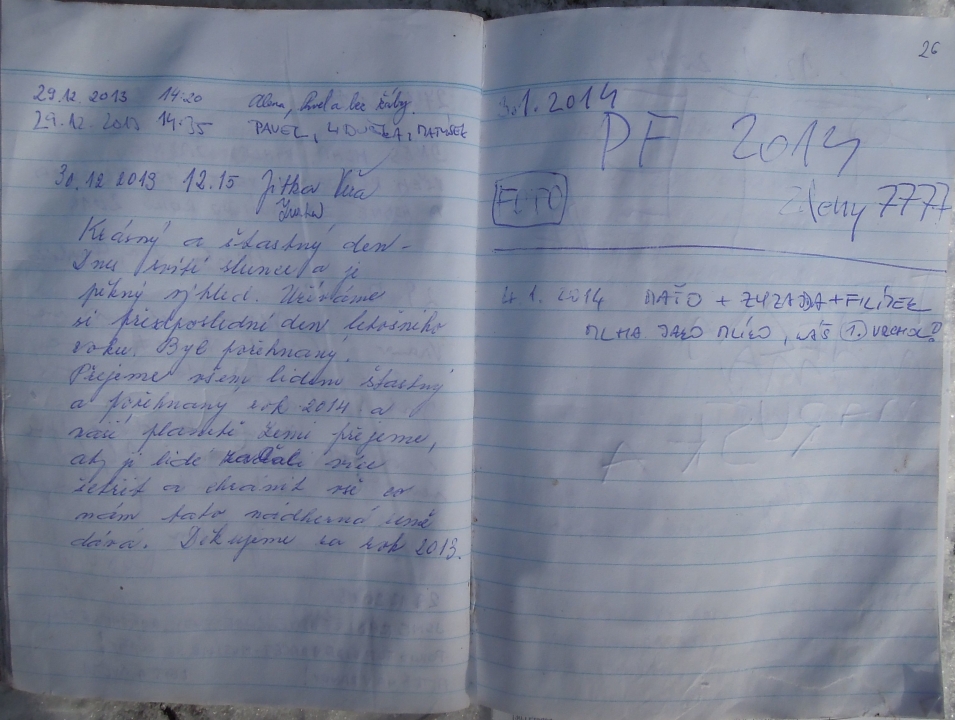 29.12.2013 14:20 Alena, Pavel a bez
29.12.2013 14:35 PAVEL, LIDUŠKA, MATÝSEK
30.12 2013 12.15 Jitka Věra
Krásný a šťastný den -
Dnes svítí slunce a je
pěkný výhled. Užíváme
si předposlední den letošního
roku. Byl požehnaný.
Přejeme všem lidem šťastný
a požehnaný rok 2014 a
naší planetě Zemi přejeme,
aby ji lidé začali více
šetřit a chránit vše co
nám tato nádherná země
dává. Děkujeme za rok 2013.
26
3.1.2014
PF 2014
FOTO
7777
4.1. 2014 MAŤO + ZUZAJDA + FILÍPEK
MLHA JAKO MLÍKO, NÁŠ 1. VRCHOL